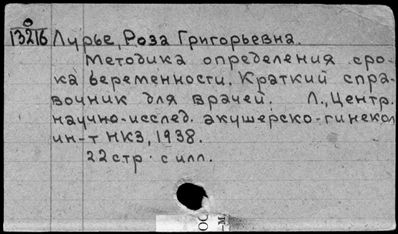 13216 Лурье, Роза Григорьевна.
Методика определения сро-
ка беременности. Краткий спра-
вочник для врачей. Л., Центр.
научно-исслед. акушерско-гинекол
ин-т НКЗ, 1938.
22 стр. с илл.